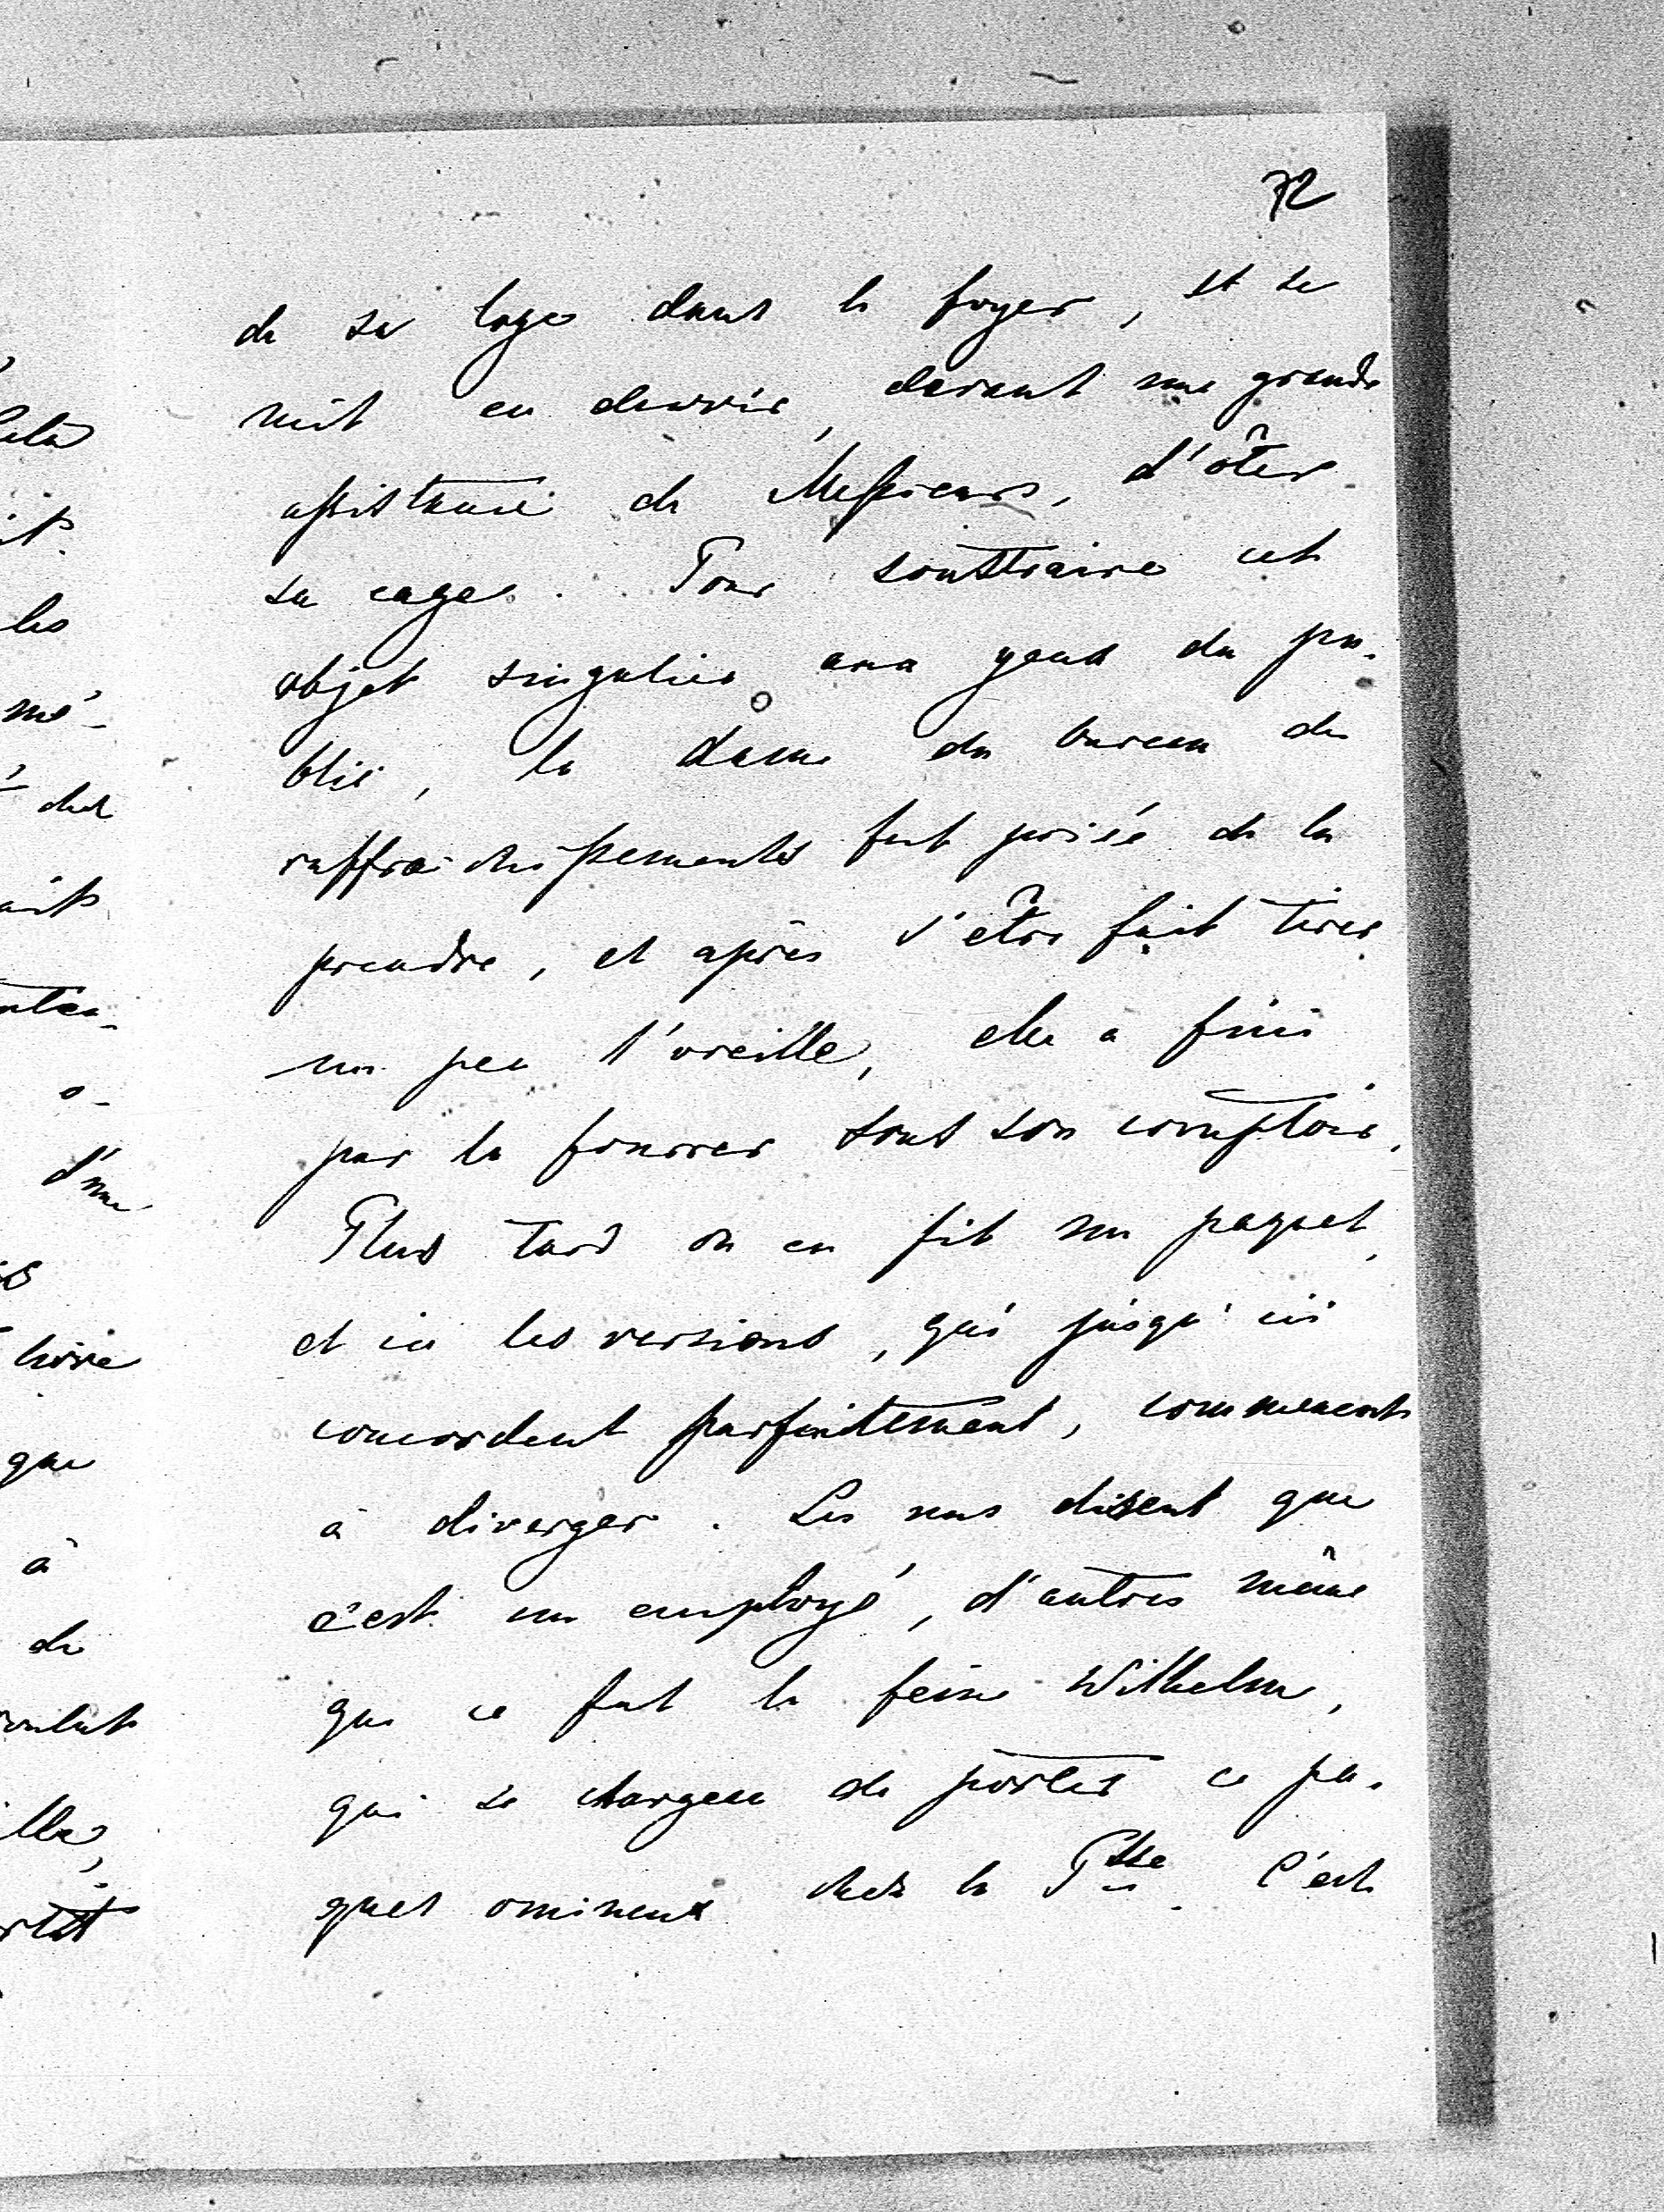 72
de sa loge dans le foyer, et se
mit en devoir, devant une grande
assistance de Messieurs, d'ôter
sa cage. Pour soustraire cet
objet singulier aux yeux du pu-
blic, la dame du bureau de
raffraichissements fut priée de la
prendre, et après s'être fait tirer
un peu l'oreille, elle a fini
par la fourrer sous son comptoir.
Plus tard on en fit un paquet,
et ici les versions, qui jusqu'ici
concordent parfaitement, commencent
à diverger. Les uns disent que
c'est un employé, d'autres même
que ce fut la Wilhelm,
qui se chargea de porter ce pa-
quet omineux chez la Psse. C'est